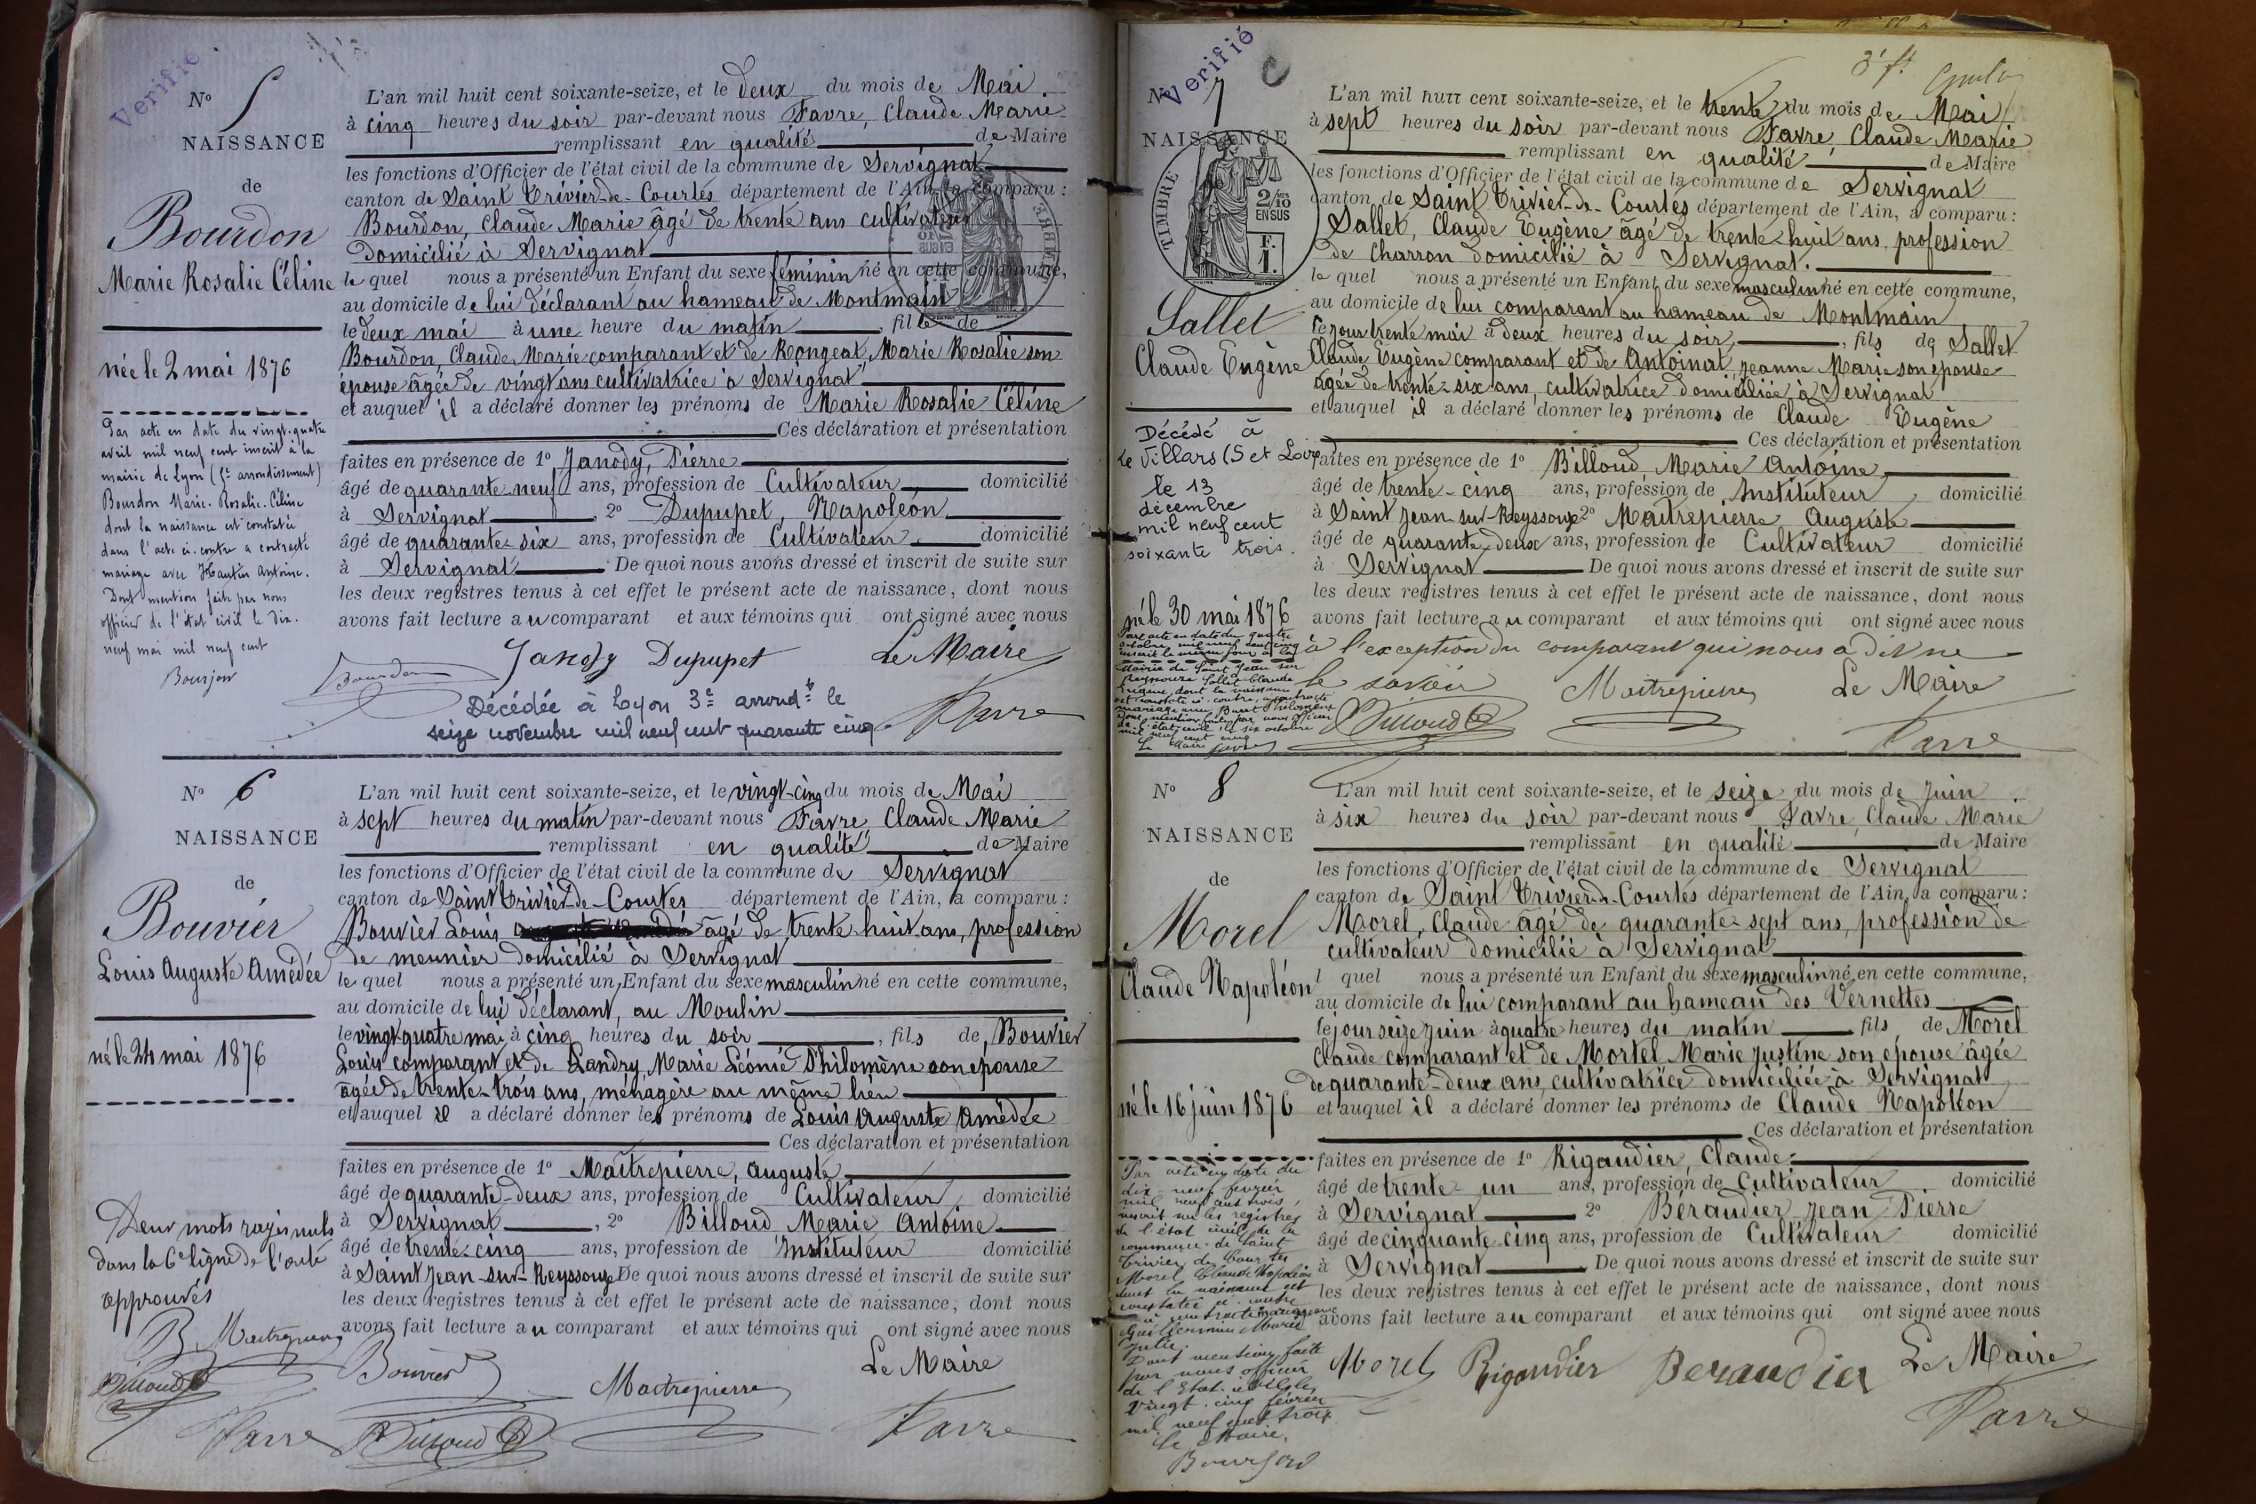 Verifié
N° 5
NAISSANCE
de
Bourdon
Marie Rosalie Céline
née le 2 mai 1876
Par acte en date du vingt-quatre
avril mil neuf cent inscrit à la
mairie de Lyon (1er arrondissement)
Bourdon Marie-Rosalie-Céline
dont la naissance est constatée
dans l'acte ci-contre a contracté
mariage avec Hautin Antoine.
Dont mention faite par nous
officier de l'état civil le dix-
neuf mai mil neuf cent
Bourjon
L'an mil huit cent soixante-seize, et le deux du mois de Mai
à cinq heures du soir par-devant nous Favre, Claude Marie
remplissant en qualité de Maire
les fonctions d'Officier de l'état civil de la commune de Servignat
canton de Saint Trivier-de-Courtes département de l'Ain, a comparu :
Bourdon, Claude Marie âgé de trente ans cultivateur
domicilié à Servignat
le quel nous a présenté un Enfant du sexe féminin né en cette commune,
au domicile de lui déclarant au hameau de Montmain
le deux mai à une heure du matin, fille de
Bourdon, Claude Marie comparant et de Rongeat, Marie Rosalie son
épouse âgée de vingt ans cultivatrice à Servignat
et auquel il a déclaré donner les prénoms de Marie Rosalie Céline
Ces déclaration et présentation
faites en présence de 1° Janody, Pierre
âgé de quarante-neuf ans, profession de Cultivateur domicilié
à Servignat, 2° Dupupet, Napoléon
âgé de quarante-six ans, profession de Cultivateur domicilié
à Servignat De quoi nous avons dressé et inscrit de suite sur
les deux registres tenus à cet effet le présent acte de naissance, dont nous
avons fait lecture au comparant et aux témoins qui ont signé avec nous
Janody Dupupet Le Maire
Bourdon
Favre
Décédée à Lyon 3e arrondt le
seize novembre mil neuf cent quarante cinq
N° 6
NAISSANCE
de
Bouvier
Louis Auguste Amédée
né le 24 mai 1876
Deux mots rayés nuls
dans la 6e ligne de l'acte
approuvés
B. Maitrepierre
Billoud
Favre
L'an mil huit cent soixante-seize, et le vingt-cinq du mois de Mai
à sept heures du matin par-devant nous Favre, Claude Marie
remplissant en qualité de Maire
les fonctions d'Officier de l'état civil de la commune de Servignat
canton de Saint Trivier-de-Courtes département de l'Ain, a comparu :
Bouvier Louis âgé de trente-huit ans, profession
de meunier domicilié à Servignat
le quel nous a présenté un Enfant du sexe masculin né en cette commune,
au domicile de lui déclarant, au Moulin
le vingt-quatre mai à cinq heures du soir, fils de Bouvier
Louis comparant et de Landry, Marie Léonie Philomène son épouse
âgée de trente-trois ans, ménagère au même lieu
et auquel il a déclaré donner les prénoms de Louis Auguste Amédée
Ces déclaration et présentation
faites en présence de 1° Maitrepierre, Auguste
âgé de quarante-deux ans, profession de Cultivateur domicilié
à Servignat, 2° Billoud Marie Antoine
âgé de trente-cinq ans, profession de Instituteur domicilié
à Saint Jean-sur-Reyssouze De quoi nous avons dressé et inscrit de suite sur
les deux registres tenus à cet effet le présent acte de naissance, dont nous
avons fait lecture au comparant et aux témoins qui ont signé avec nous
Le Maire
Bouvier Maitrepierre
Billoud Favre
Verifié
N° 7
NAISSANCE
TIMBRE
2/10 EN SUS
F. 1.
Sallet
Claude Eugène
Décédé à
Le Villars (S et Loire)
le 13
décembre
mil neuf cent
soixante trois.
né le 30 mai 1876
Par acte en date du quatre
octobre mil neuf cent cinq
inscrit le même jour à la
Mairie de Saint Jean sur
Reyssouze Sallet Claude
Eugène, dont la naissance
est constatée ci-contre, a contracté
mariage avec Buret Philomène
Dont mention faite par nous officier
de l'état civil le six octobre
mil neuf cent cinq
Le Maire
L'an mil huit cent soixante-seize, et le trente du mois de Mai
à sept heures du soir par-devant nous Favre, Claude Marie
remplissant en qualité de Maire
les fonctions d'Officier de l'état civil de la commune de Servignat
canton de Saint Trivier-de-Courtes département de l'Ain, a comparu :
Sallet, Claude Eugène âgé de trente-huit ans, profession
de Charron domicilié à Servignat.
le quel nous a présenté un Enfant du sexe masculin né en cette commune,
au domicile de lui comparant au hameau de Montmain
le jour trente mai à deux heures du soir, fils de Sallet
Claude Eugène comparant et de Antoinat, Jeanne Marie son épouse
âgée de trente-six ans, cultivatrice domiciliée à Servignat
et auquel il a déclaré donner les prénoms de Claude Eugène
Ces déclaration et présentation
faites en présence de 1° Billoud, Marie Antoine
âgé de trente-cinq ans, profession de Instituteur, domicilié
à Saint Jean-sur-Reyssouze 2° Maitrepierre Auguste
âgé de quarante-deux ans, profession de Cultivateur domicilié
à Servignat De quoi nous avons dressé et inscrit de suite sur
les deux registres tenus à cet effet le présent acte de naissance, dont nous
avons fait lecture au comparant et aux témoins qui ont signé avec nous
à l'exception du comparant qui nous a dit ne
le savoir Maitrepierre Le Maire
Billoud Favre
N° 8
NAISSANCE
de
Morel
Claude Napoléon
né le 16 juin 1876
Par acte en date du
dix-neuf février
mil neuf cent trois,
inscrit sur les registres
de l'état civil de la
commune de Saint
Trivier de Courtes
Morel Claude Napoléon
dont la naissance est
constatée ci-contre
a contracté mariage avec
Guillermin Marie
Julie.
Dont mention faite
par nous officier
de l'Etat civil le
vingt-cinq février
mil neuf cent trois
Le Maire,
Bourjon
L'an mil huit cent soixante-seize, et le seize du mois de Juin
à six heures du soir par-devant nous Favre, Claude Marie
remplissant en qualité de Maire
les fonctions d'Officier de l'état civil de la commune de Servignat
canton de Saint Trivier-de-Courtes département de l'Ain, a comparu :
Morel, Claude âgé de quarante-sept ans, profession de
cultivateur domicilié à Servignat
l quel nous a présenté un Enfant du sexe masculin né en cette commune,
au domicile de lui comparant au hameau des Vernettes
le jour seize juin à quatre heures du matin fils de Morel
Claude comparant et de Mortel Marie Justine son épouse âgée
de quarante-deux ans, cultivatrice domiciliée à Servignat
et auquel il a déclaré donner les prénoms de Claude Napoléon
Ces déclaration et présentation
faites en présence de 1° Rigaudier, Claude
âgé de trente un ans, profession de Cultivateur domicilié
à Servignat 2° Béraudier Jean Pierre
âgé de cinquante cinq ans, profession de Cultivateur domicilié
à Servignat De quoi nous avons dressé et inscrit de suite sur
les deux registres tenus à cet effet le présent acte de naissance, dont nous
avons fait lecture au comparant et aux témoins qui ont signé avec nous
Morel Rigaudier Beraudier Le Maire
Favre